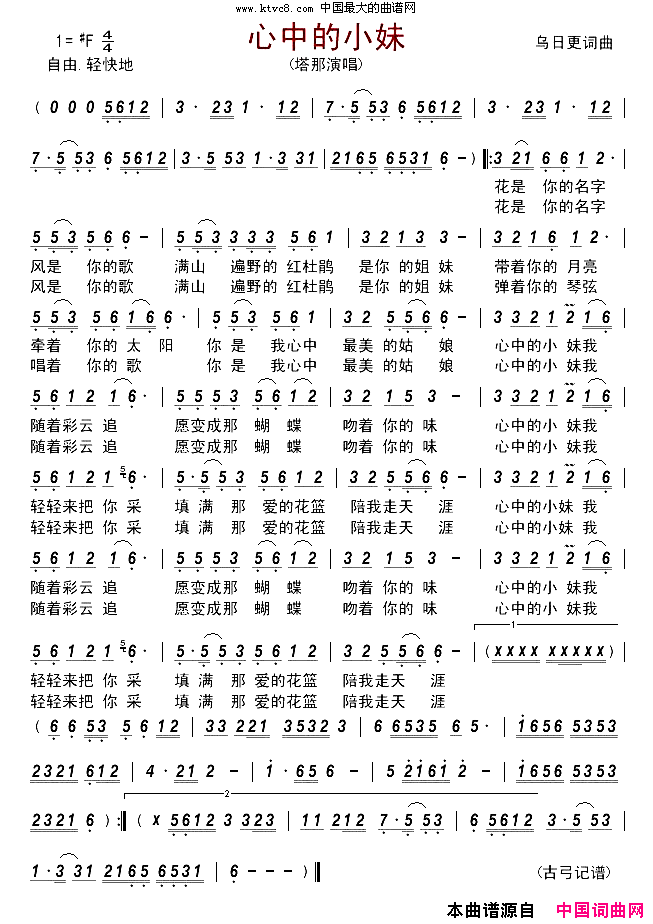 www.ktvc8.com 中国最大的曲谱网
心中的小妹
1= #F 4/4
乌日更词曲
自由.轻快地
(塔那演唱)
( 0 0 0 5612 | 3 · 23 1 · 12 | 7 · 5 53 6 5612 | 3 · 23 1 · 12 |
7 · 5 53 6 5612 | 3 · 5 53 1 · 3 31 | 2165 6531 6 - ) ‖: 3 21 6 6 1 2 · |
花是 你的名字
花是 你的名字
5 5 3 5 6 6 - | 5 5 5 3 5 5 3 5 6 1 | 3 2 1 3 3 - | 3 3 2 1 6 1 2 · |
风是 你的歌 满山 遍野的 红杜鹃 是你 的姐 妹 带着你的 月亮
风是 你的歌 满山 遍野的 红杜鹃 是你 的姐 妹 弹着你的 琴弦
5 5 3 5 6 1 6 6 · | 5 · 5 5 3 5 6 1 | 3 2 5 5 6 6 - | 3 3 2 3 2 1 2 1 6 · |
牵着 你的 太 阳 你 是 我心中 最美 的姑 娘 心中的小 妹我
唱着 你的 歌 你 是 我心中 最美 的姑 娘 心中的小 妹我
5 6 1 2 1 6 · | 5 5 5 3 5 6 1 2 | 3 2 1 5 3 - | 3 3 2 3 2 1 2 1 6 · |
随着彩云 追 愿变成那 蝴 蝶 吻着 你的 味 心中的小 妹我
随着彩云 追 愿变成那 蝴 蝶 吻着 你的 味 心中的小 妹我
5 6 1 2 1 5 6 · | 5 · 5 5 3 5 6 1 2 | 3 2 5 5 6 6 - | 3 3 2 3 2 1 2 1 6 · |
轻轻来把 你 采 填 满 那 爱的花篮 陪我走天 涯 心中的小 妹我
轻轻来把 你 采 填 满 那 爱的花篮 陪我走天 涯 心中的小 妹我
5 6 1 2 1 6 · | 5 5 5 3 5 6 1 2 | 3 2 1 5 3 - | 3 3 2 3 2 1 2 1 6 · |
随着彩云 追 愿变成那 蝴 蝶 吻着 你的 味 心中的小 妹我
随着彩云 追 愿变成那 蝴 蝶 吻着 你的 味 心中的小 妹我
1
5 6 1 2 1 5 6 · | 5 · 5 5 3 5 6 1 2 | 3 2 5 5 6 6 - | (XXXX XXXXX) |
轻轻来把 你 采 填 满 那 爱的花篮 陪我走天 涯
轻轻来把 你 采 填 满 那 爱的花篮 陪我走天 涯
( 6 6 53 5 6 12 | 33 221 3532 3 | 6 6535 6 5 · | 1656 5353
2321 612 | 4 · 21 2 - | 5 2161 2 - | 5656 5353
2
2321 6 ) :‖ ( X 5612 3 323 | 11 212 7 · 5 53 | 6 5612 3 · 5 53 |
1 · 3 31 2165 6531 | 6 - - - ) ‖
(古弓记谱)
本曲谱源自 中国词曲网